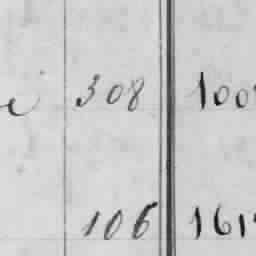 308 100
106 161